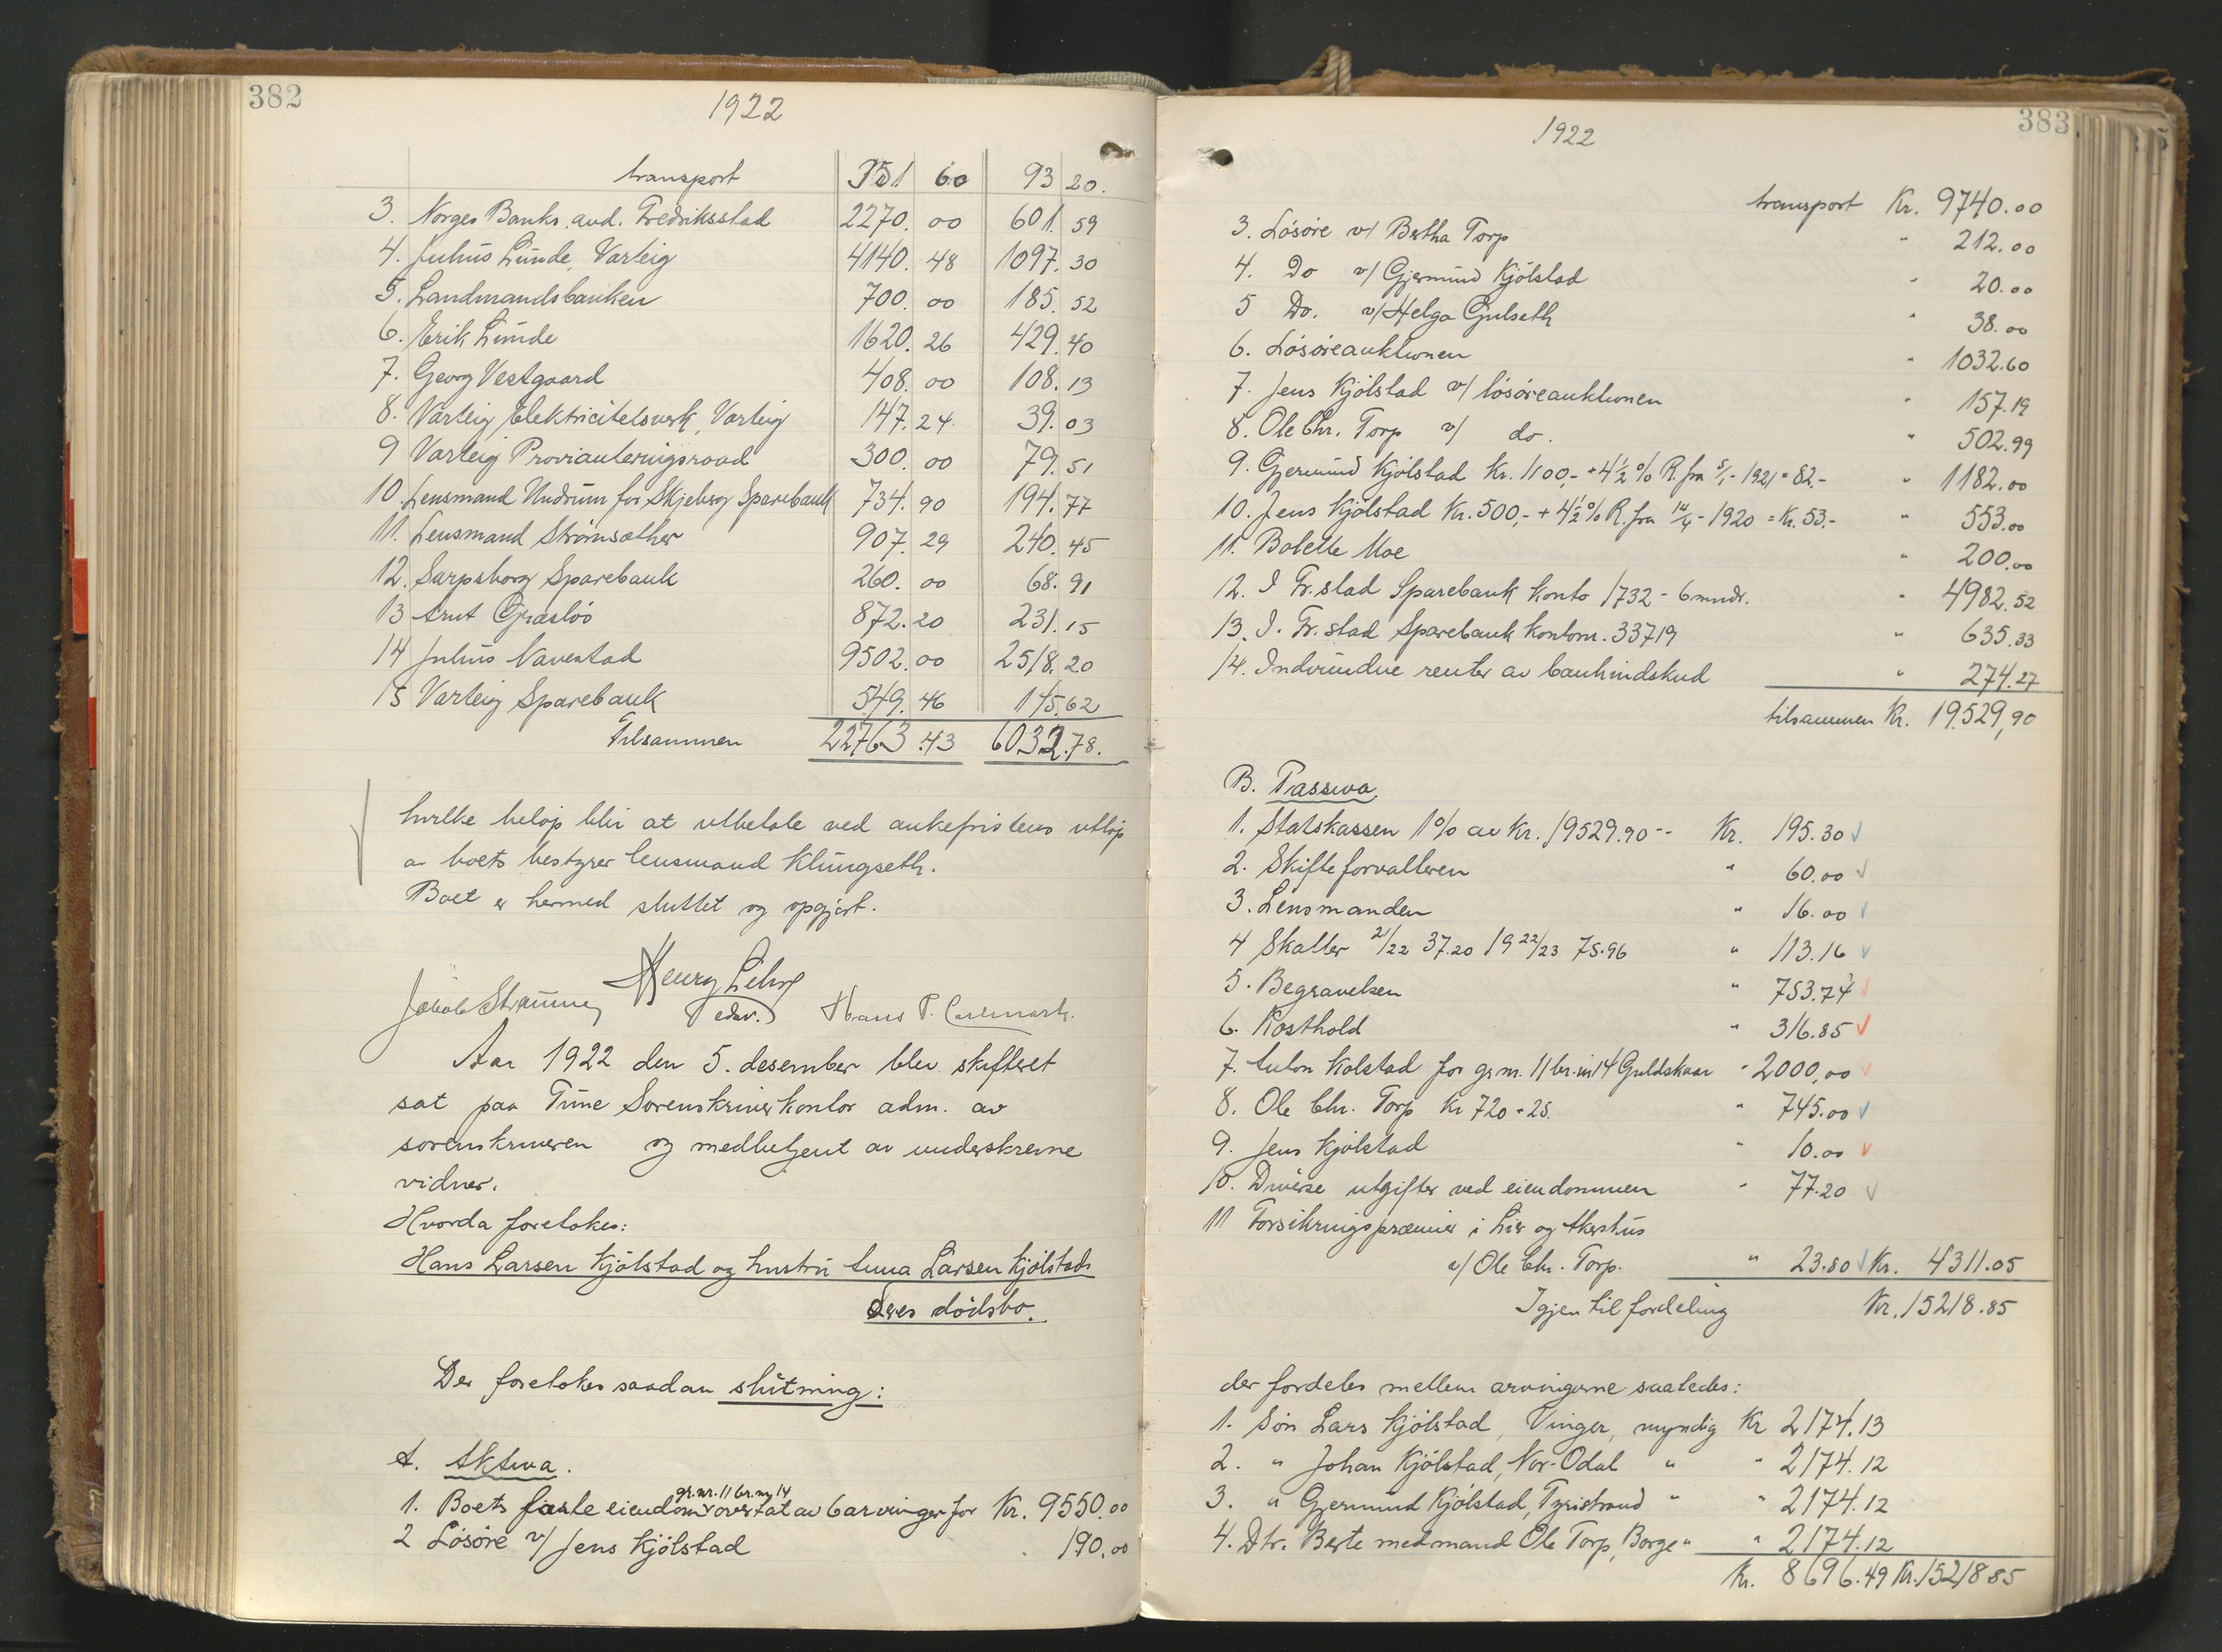 382
1922
transport 351 60 93 20.
3. Norges Banks avd. Fredriksstad 2270. 00 601. 59
4. Julius Lunde, Varteig 4140. 48 1097. 30
5. Landmandsbanken 700. 00 185. 52
6. Erik Lunde 1620. 26 429. 40
7. Georg Vestgaard 408. 00 108. 13
8. Varteig Elektricitetsverk, Varteig 147. 24. 39. 03
9 Varteig Provianteringsraad 300. 00 79. 51
10. Lensmand Undrum for Skjeberg Sparebank 734. 90 194. 77
11. Lensmand Strømsæther 907. 29 240. 45
12. Sarpsborg Sparebank 260. 00 68. 91
13 Arnt 872. 20 231. 15
14 Julius Navestad 9502. 00 2518. 20
15 Varteig Sparebank 549. 46 145. 62
Tilsammen 22763.43 6032.78.
hvilke beløp blir at utbetale ved ankefristens utløp
av boets bestyrer lensmand Klungseth.
Boet er hermed sluttet og opgjort.
Henry Lehre
Jakob edsv. Hans P.
Aar 1922 den 5. desember blev skifteret
sat paa Tune Sorenskriverkontor adm. av
sorenskriveren og medbetjent av underskrevne
vidner.
Hvorda foretokes:
Hans Larsen Kjölstad og hustru Anna Larsen Kjölstads
deres dödsbo.
Der foretokes saadan slutning:
A. Aktiva.
gr.nr. 11 br.nr 14
1. Boets faste eiendom overtat av 6 arvinger for Kr. 9550.00
2 Lösöre v/ Jens Kjölstad 190.00
383
1922
transport Kr. 9740.00
3. Lösöre v/ Bertha Torp " 212.00
4. Do v/ Gjermund Kjölstad " 20.00
5 Do. v/ Helga Gulseth " 38.00
6. Lösöreauktionen " 1032.60
7. Jens Kjölstad v/ lösöreauktionen " 157.19
8. Ole Chr. Torp v/ do. " 502.99
9. Gjermund Kjölstad Kr. 1100,- + 4½ % R. fra 5/1 - 1921 = 82.- " 1182.00
10. Jens Kjölstad Kr. 500,- + 4½ % R. fra 14/4 - 1920 = Kr. 53.- " 553.00
11. Bolette Moe " 200.00
12. I Fr.stad Sparebank konto 1732 - 6 mndr. " 4982.52
13. I. Fr.stad Sparebank kontonr. 33719 " 635.33
14. Indvundne renter av bankindskud " 274.27
tilsammen Kr. 19.529,90
B. Passiva.
1. Statskassen 1% av Kr. 19529.90 -- Kr. 195.30
2. Skifteforvalteren " 60.00
3. Lensmanden " 16.00
4 Skatter 21/22 37.20 19 22/23 75.96 " 113.16
5. Begravelsen " 753.74
6. Kosthold " 316.85
7. Anton Kolstad for gr.nr. 11 br.nr 14 Guldskaar " 2000,00
8. Ole Chr. Torp Kr 720 + 25. " 745.00
9. Jens Kjölstad " 10.00
10. Diverse utgifter ved eiendommen " 77.20
11 Forsikringspræmier i Lier og Akershus
v/ Ole Chr. Torp. " 23.80 Kr. 4311.05
Igjen til fordeling Kr. 15218.85
der fordeles mellem arvingerne saaledes:
1. Sön Lars Kjölstad, Vinger, myndig Kr 2174.13
2. " Johan Kjölstad, Nor-Odal " " 2174.12
3. " Gjermund Kjölstad, Tyristrand " " 2174.12
4. Dtr. Berte med mand Ole Torp, Borge " " 2174.12
Kr. 8696.49 Kr. 15218 85